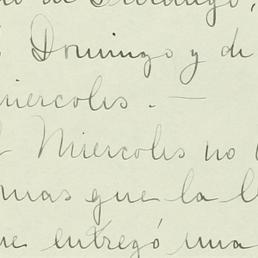 de Durango,
Domingo y de
miercoles. —
Miercoles no
mas que la
entregó una